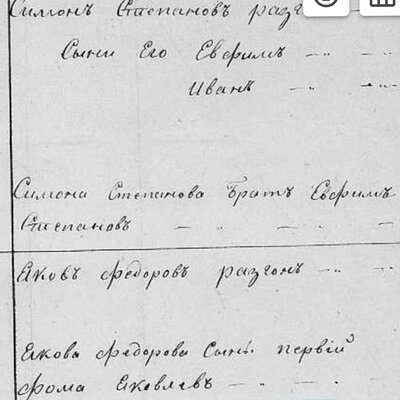 Симонъ Степановъ разг
Сыни Его Евфимъ — „ —
Иванъ — „ —
Симона Степанова Братъ Евфимъ
Степановъ — — „ — — „ —
Яковъ Федоровъ разгонъ — „ —
Якова Федорова Сынъ первій
Фома Яковлевъ — „ — „ —